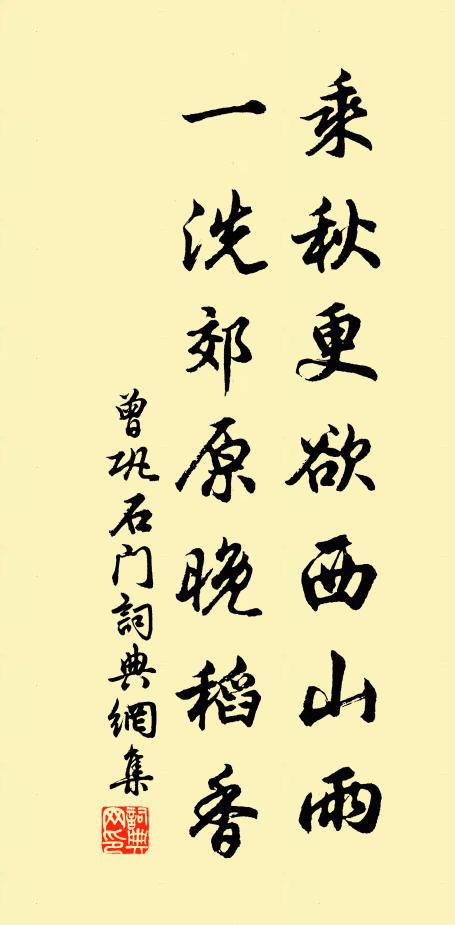 乘秋更欲西山雨
一洗郊原晚稻香
曾巩石门詞典網集
詞典
网印